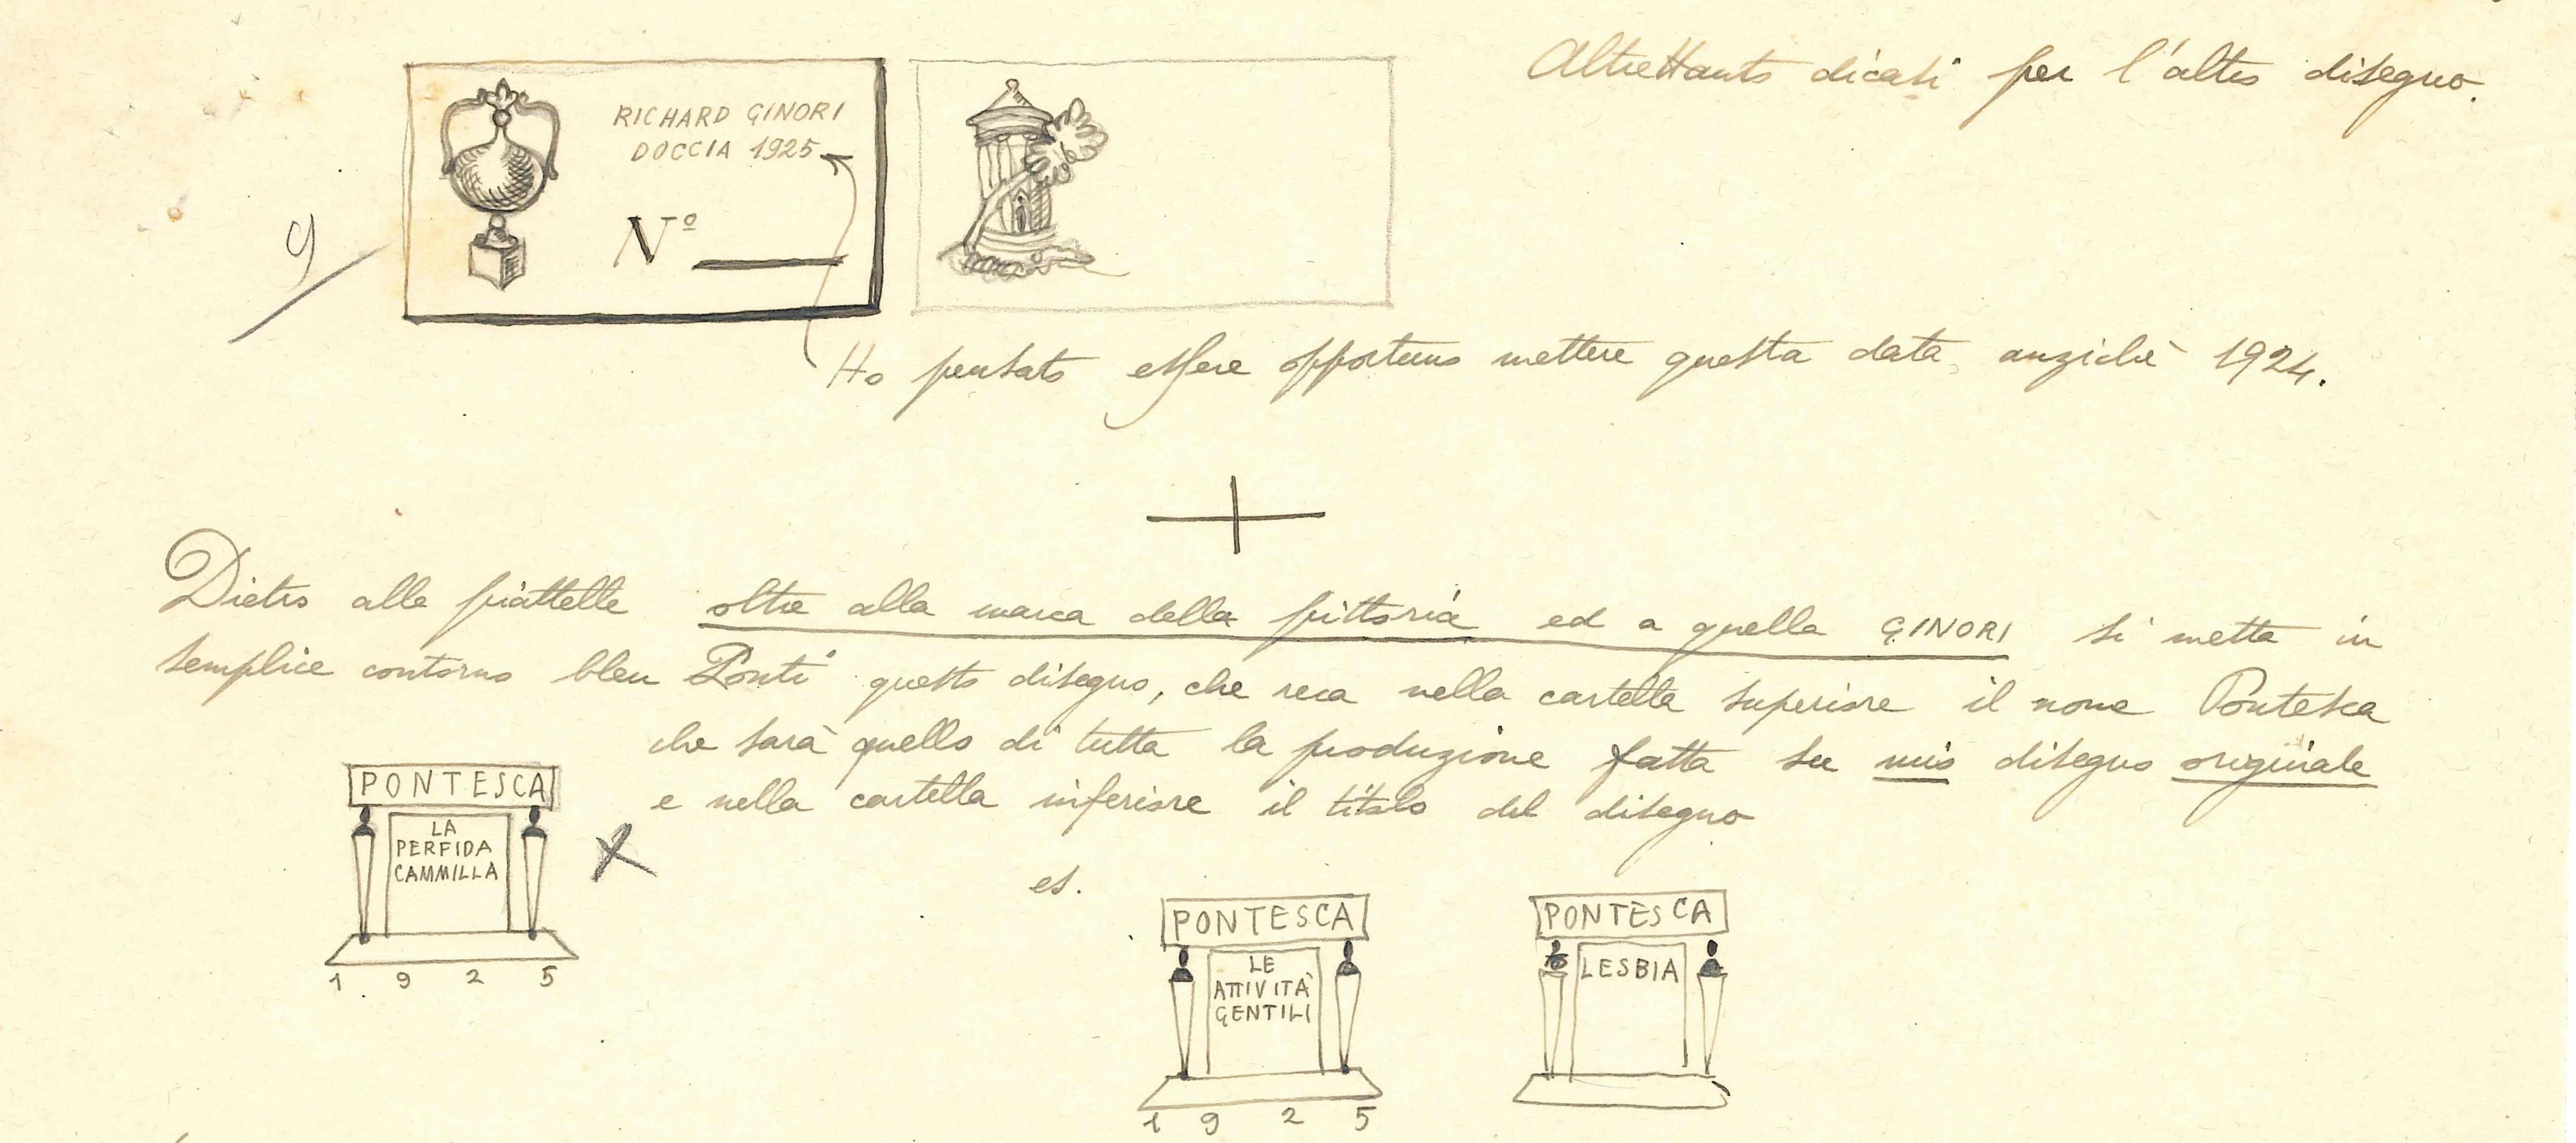 Altrettanto dicasi per l'altro disegno.
RICHARD GINORI
DOCCIA 1925
Nº
9
Ho pensato essere opportuno mettere questa data, anzichè 1924.
Dietro alle piattelle oltre alla marca della pittoria ed a quella GINORI si metta in
semplice contorno bleu Ponti questo disegno, che reca nella cartella superiore il nome Pontesca
che sarà quello di tutta la produzione fatta su mio disegno originale
e nella cartella inferiore il titolo del disegno
PONTESCA
LA
PERFIDA
CAMMILLA
1 9 2 5
es.
PONTESCA
LE
ATTIVITÀ
GENTILI
1 9 2 5
PONTESCA
LESBIA